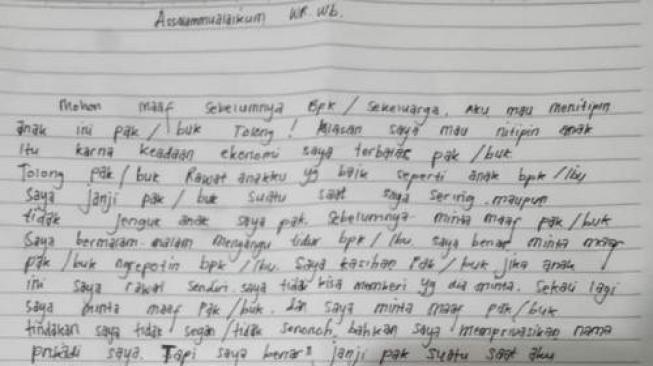 Assalammualaikum WR. Wb.
Mohon maaf sebelumnya Bpk / sekeluarga. Aku mau menitipin
anak ini pak / buk Tolong! Alasan saya mau nitipin anak
itu karna keadaan ekonomi saya terbatas pak / buk
Tolong pak / buk Rawat anakku yg baik seperti anak bpk / ibu
saya janji pak / buk suatu saat saya sering maupun
tidak jenguk anak saya pak. Sebelumnya minta maaf pak / buk
Saya bermalam-malam mengangu tidur bpk / ibu. saya benar minta maaf
pak / buk ngrepotin bpk / ibu. Saya kasihan Pak / buk jika anak
ini saya rawat sendiri. saya tidak bisa memberi yg dia minta. Sekali lagi
saya minta maaf Pak / buk. dan saya minta maaf pak / buk
tindakan saya tidak segan / tidak senonoh, bahkan saya memprivasikan nama
pribadi saya. Tapi saya benar² janji pak suatu saat aku